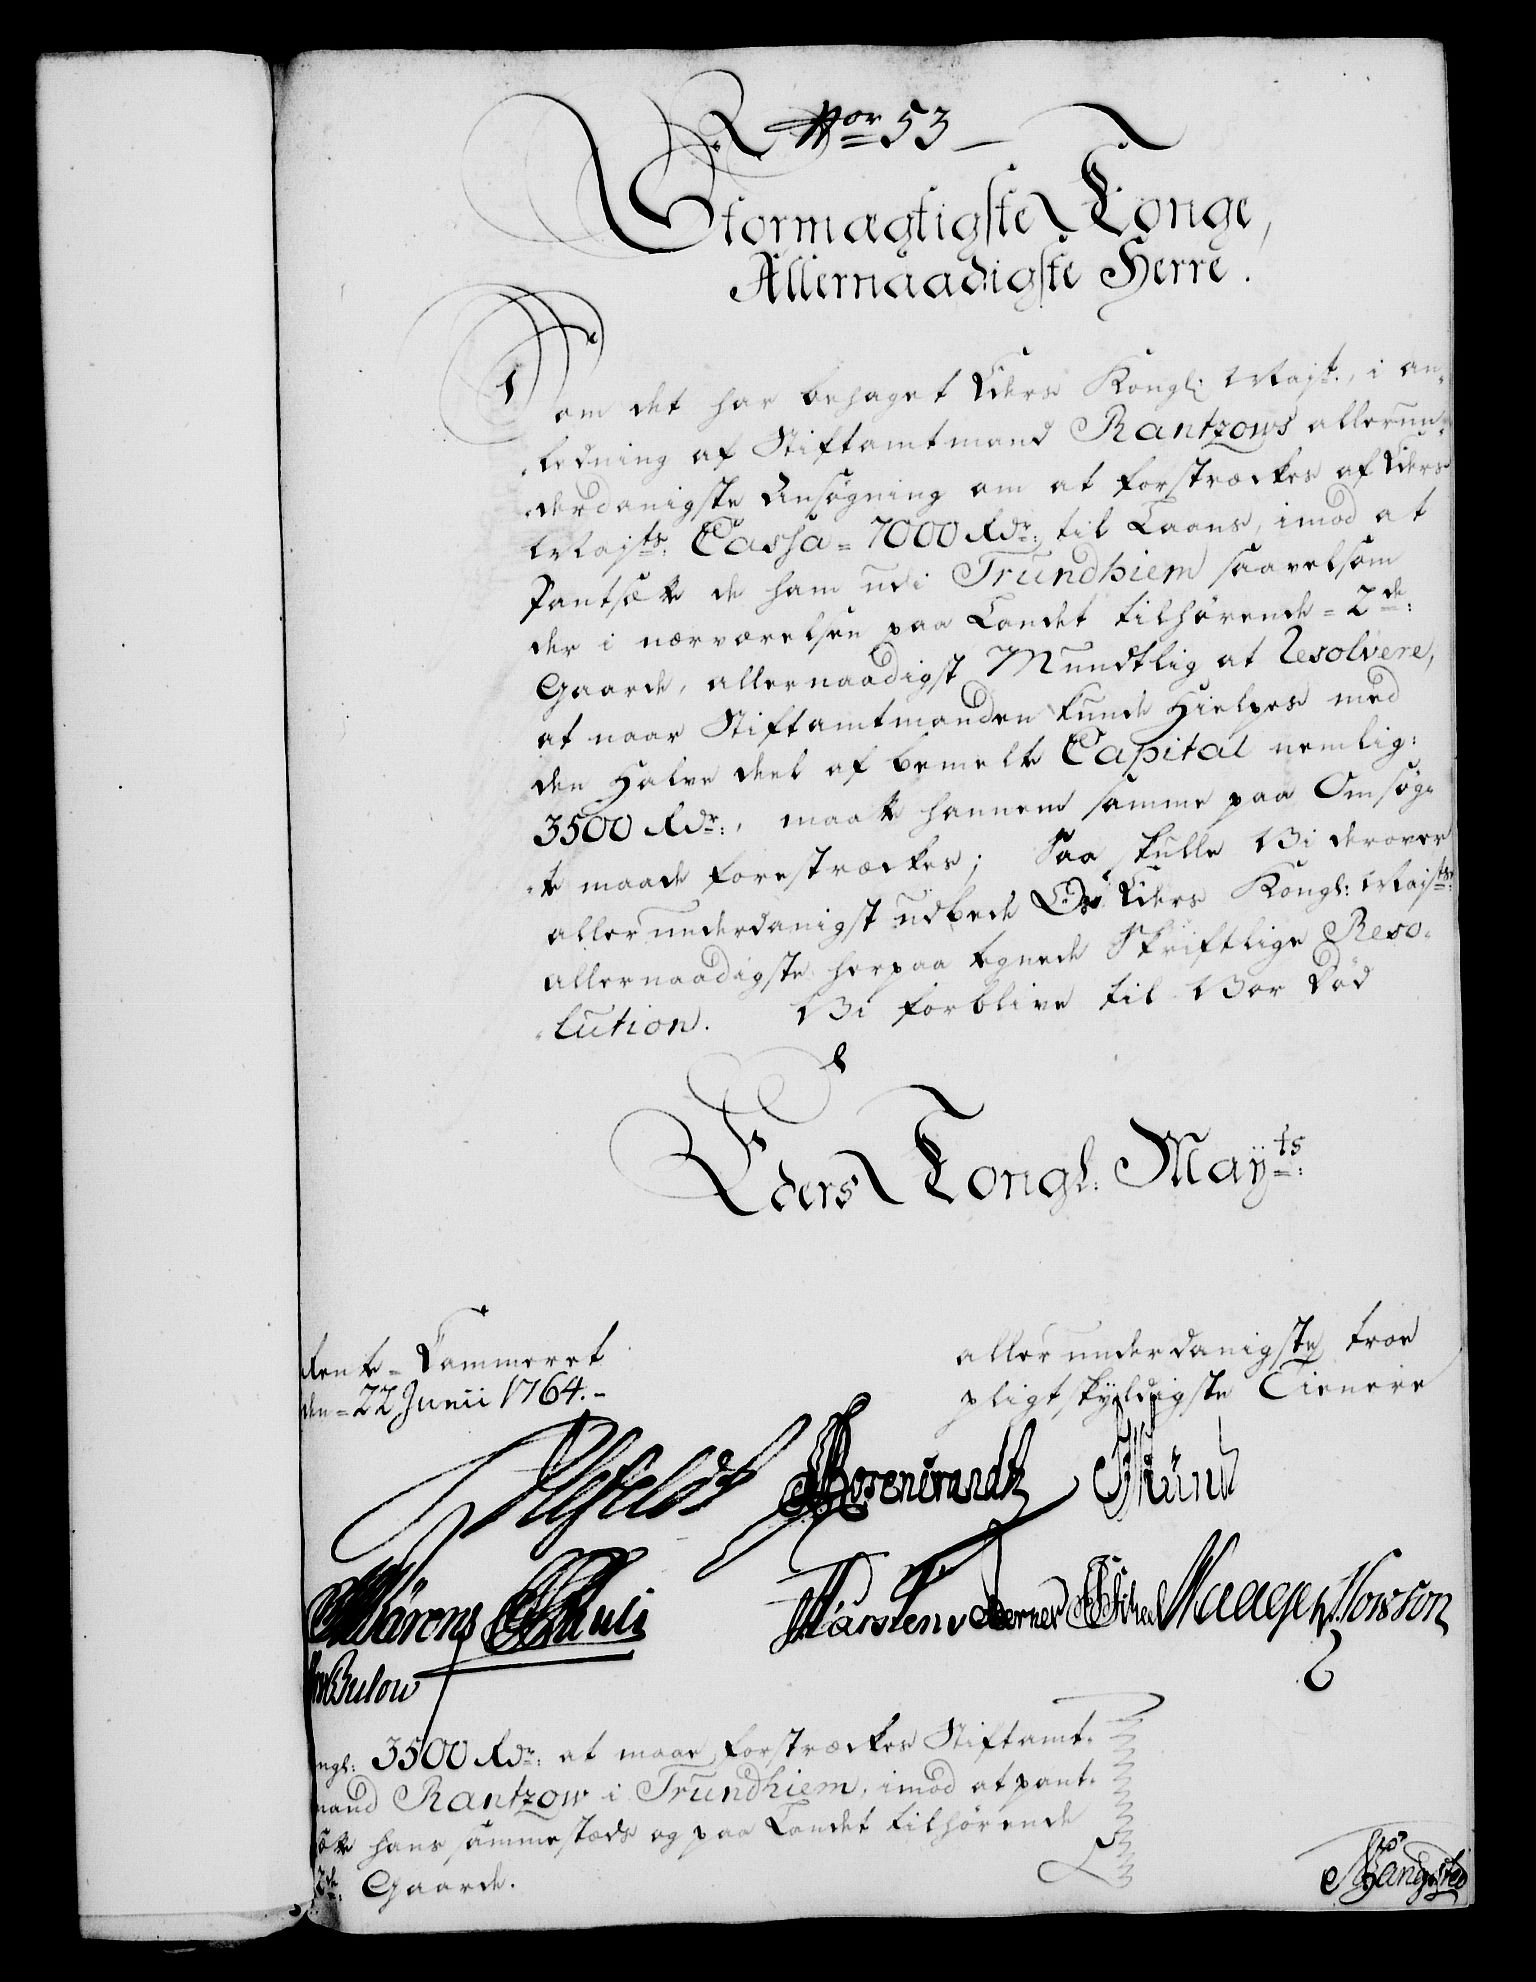 Nor 53
Stormægtigste Konge,
Allernaadigste Herre.
Som det har behaget Eders Kongl: Majt., i an-
ledning af Stiftamtmand Rantzows allerun-
derdanigste Ansøgning om at forstrækkes af Eders
Majts: Cassa = 7000 Rdr: til Laans, imod at
Pantsætte de ham udi Trundhiem saavelsom
der i nærværelsen paa Landet tilhørende = 2de:
Gaarde, allernaadigst Mundtlig at Resolvere,
at naar Stiftamtmanden kunde Hielpes med
den Halve deel af bemelte Capital nemlig:
3500 Rdr:, maatte hannem samme paa Omsøg-
te maade forestrækkes; Saa skulle Vi derover
allerunderdanigst udbede Os Eders Kongl: Majts:
allernaadigste herpaa tegnede Skriftlige Reso-
lution. Vi forblive til Vor Død
Eders Kongl: Mayts:
Rente-Kammeret
den = 22 Junii 1764.-
allerunderdanigste troe
pligtskyldigste Tienere
Ahlefeldt Rosencrandtz
Bulow
ngl: 3500 Rdr: at maae forstrækkes Stiftamt-
mand Rantzow i Trundhiem, imod at pant-
sætte hans sammestæds og paa Landet tilhørende
2de: Gaarde.